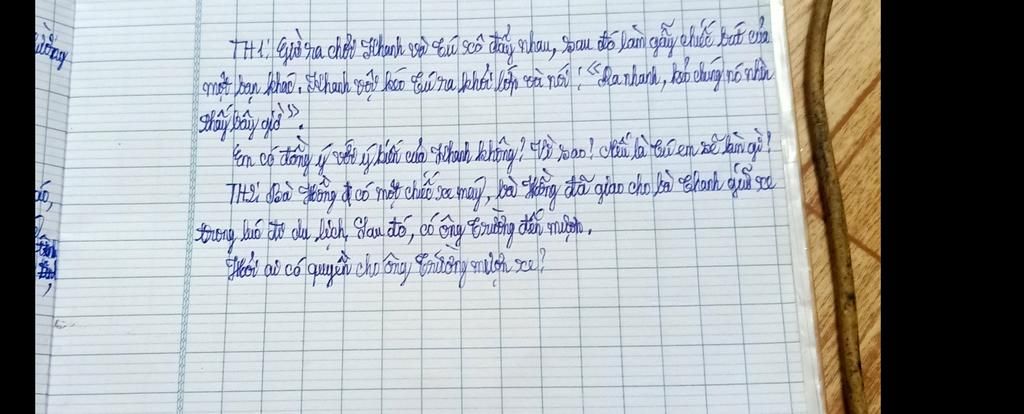 TH1: Giờ ra chơi Khanh và Tú xô đẩy nhau, sau đó làm gãy chiếc bút của
một bạn khác. Khanh vội kéo Tú ra khỏi lớp và nói: "Ra nhanh, kẻo chúng nó nhìn
thấy bây giờ".
Em có đồng ý với ý kiến của Khanh không? Vì sao? Nếu là Tú em sẽ làm gì?
TH2: Bà Hồng có một chiếc xe máy, bà Hồng đã giao cho bà Thanh giữ xe
trong lúc đi du lịch. Sau đó, có ông Trường đến mượn.
Hỏi ai có quyền cho ông Trường mượn xe?